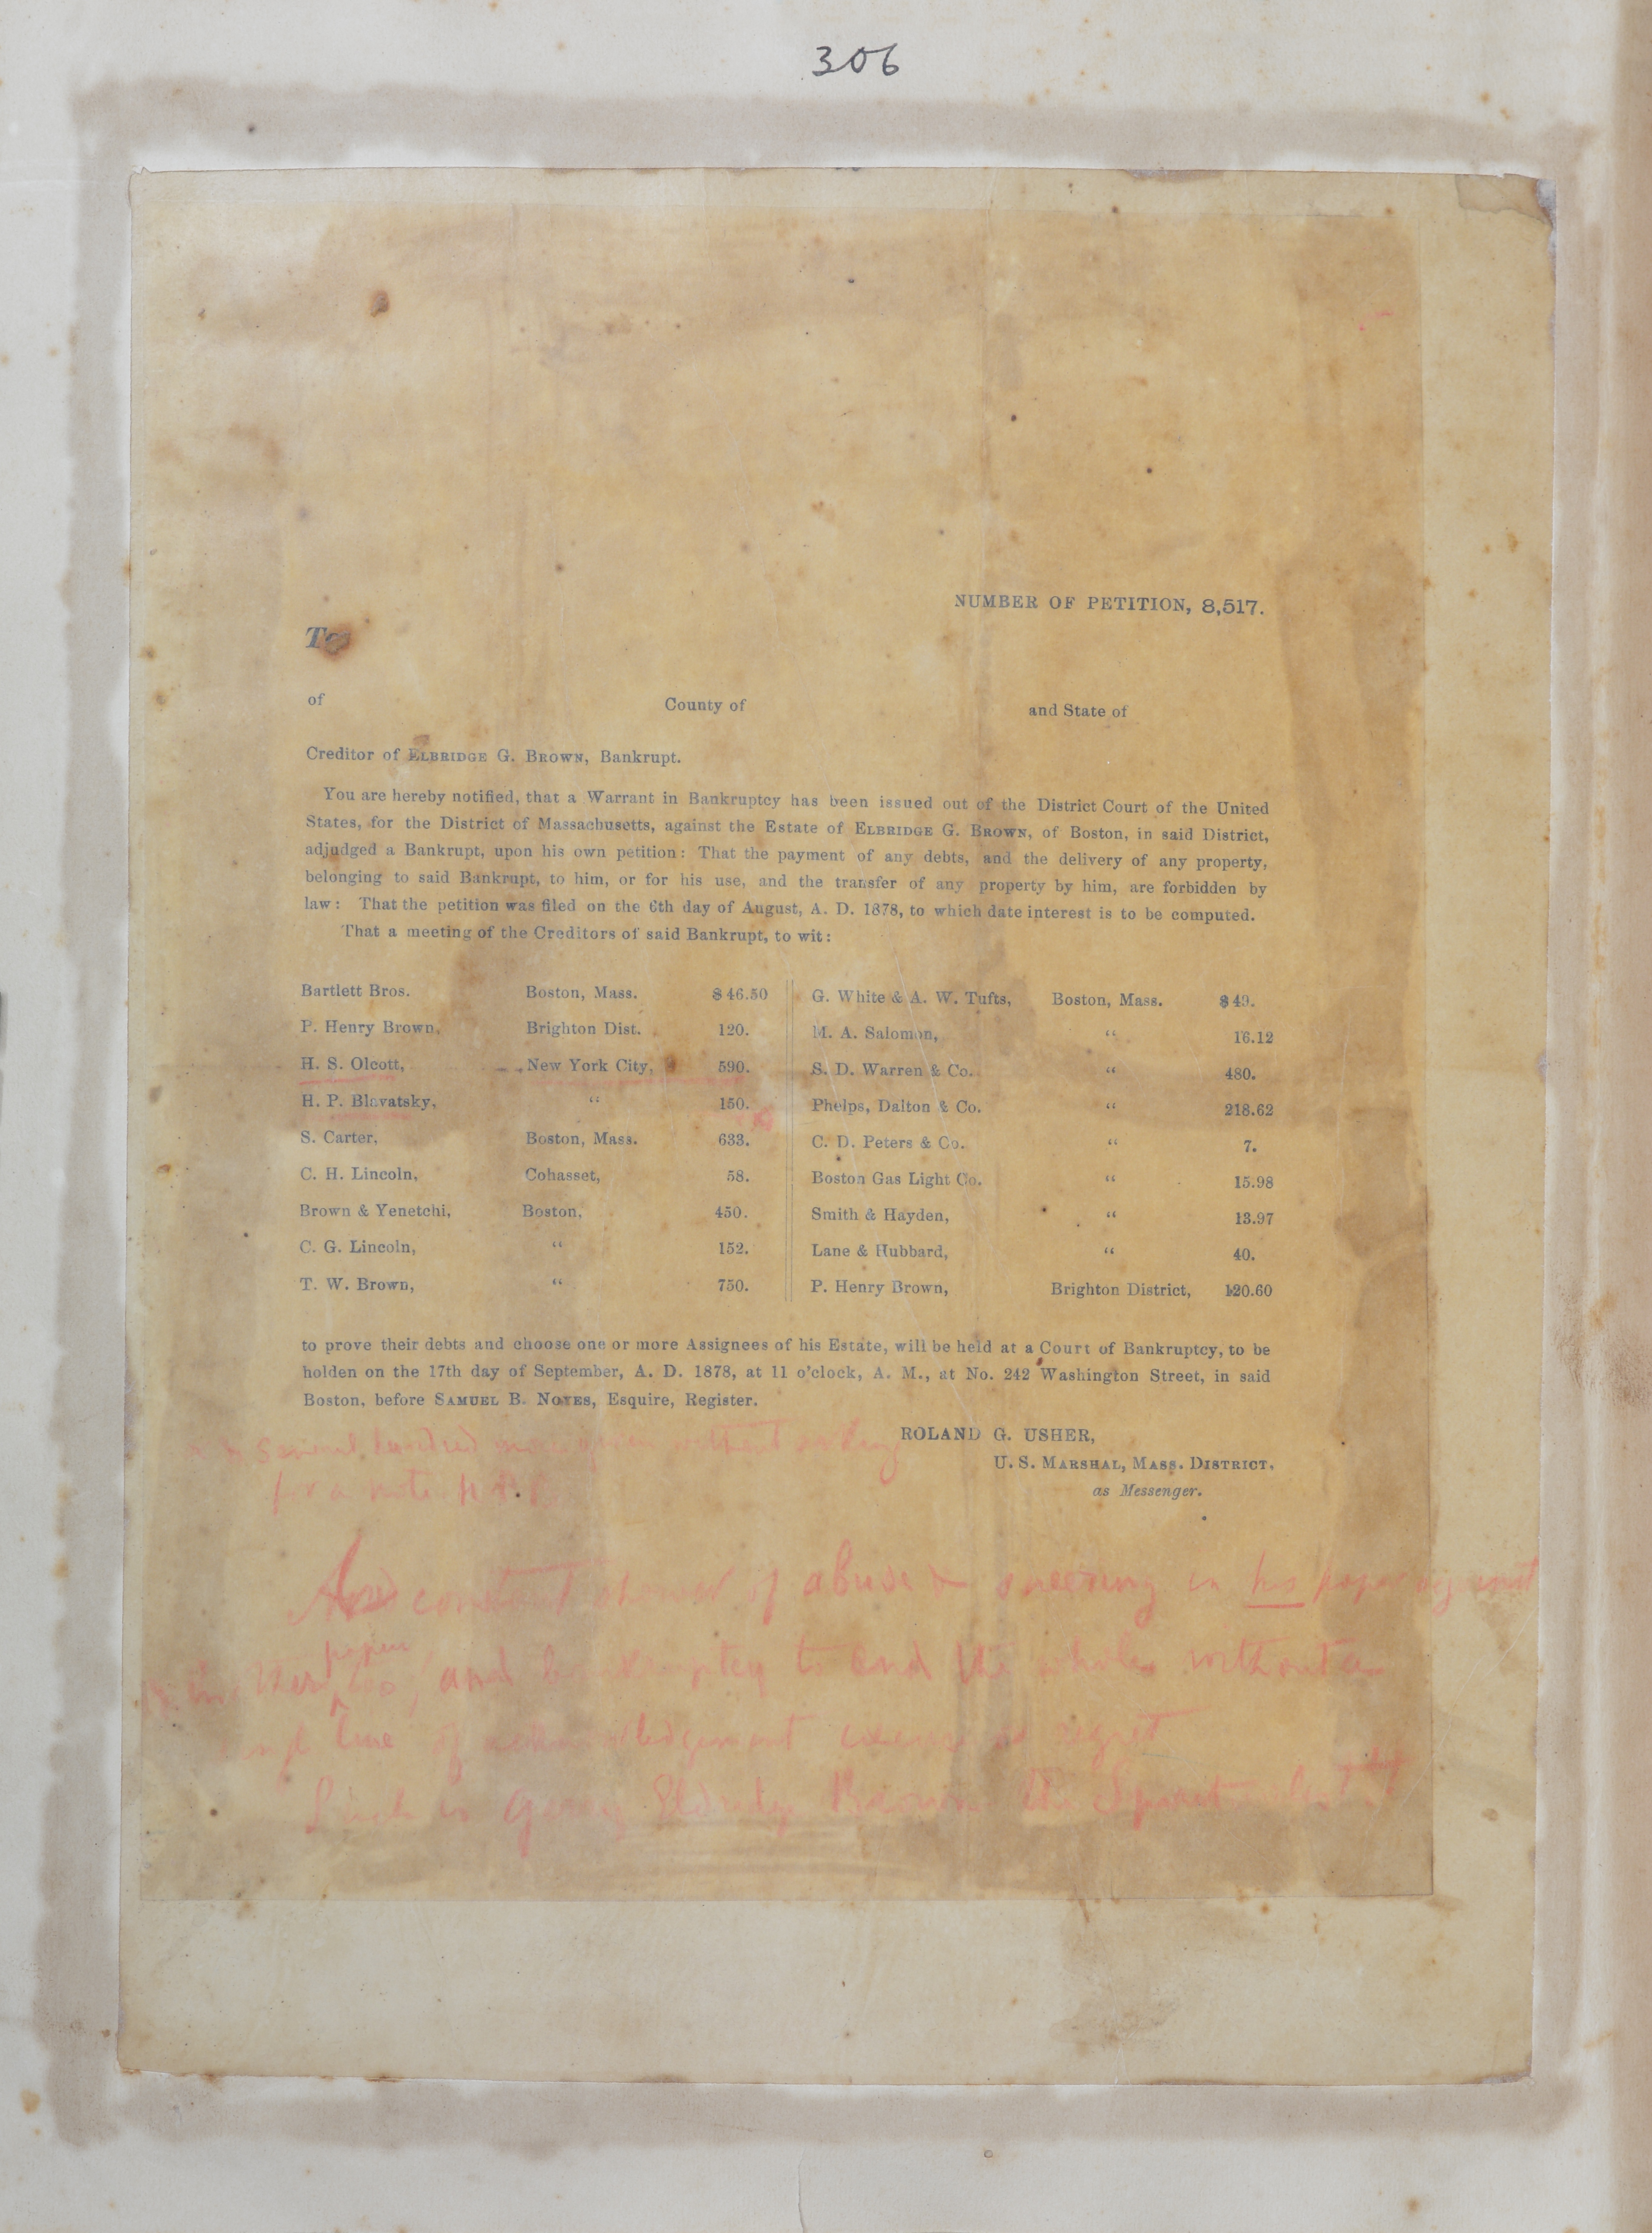 306
NUMBER OF PETITION, 8,517.
To
of County of and State of
Creditor of ELBRIDGE G. BROWN, Bankrupt.
You are hereby notified, that a Warrant in Bankruptcy has been issued out of the District Court of the United
States, for the District of Massachusetts, against the Estate of ELBRIDGE G. BROWN, of Boston, in said District,
adjudged a Bankrupt, upon his own petition: That the payment of any debts, and the delivery of any property,
belonging to said Bankrupt, to him, or for his use, and the transfer of any property by him, are forbidden by
law: That the petition was filed on the 6th day of August, A. D. 1878, to which date interest is to be computed.
That a meeting of the Creditors of said Bankrupt, to wit:
Bartlett Bros. Boston, Mass. $46.50
P. Henry Brown, Brighton Dist. 120.
H. S. Olcott, New York City, 590.
H. P. Blavatsky, “ 150.
S. Carter, Boston, Mass. 633.
C. H. Lincoln, Cohasset, 58.
Brown & Yenetchi, Boston, 450.
C. G. Lincoln, “ 152.
T. W. Brown, “ 750.
G. White & A. W. Tufts, Boston, Mass. $49.
M. A. Salomon, “ 16.12
S. D. Warren & Co. “ 480.
Phelps, Dalton & Co. “ 218.62
C. D. Peters & Co. “ 7.
Boston Gas Light Co. “ 15.98
Smith & Hayden, “ 13.97
Lane & Hubbard, “ 40.
P. Henry Brown, Brighton District, 120.60
to prove their debts and choose one or more Assignees of his Estate, will be held at a Court of Bankruptcy, to be
holden on the 17th day of September, A. D. 1878, at 11 o’clock, A. M., at No. 242 Washington Street, in said
Boston, before SAMUEL B. NOYES, Esquire, Register.
ROLAND G. USHER,
U. S. MARSHAL, MASS. DISTRICT,
as Messenger.
Several hundred more given without asking
for a note H P B
And constant shower of abuse & sneering in his paper against
papers
too, and bankruptcy to end the whole without a
line of acknowledgement excuse or regret
Such is Brown the Spiritualist